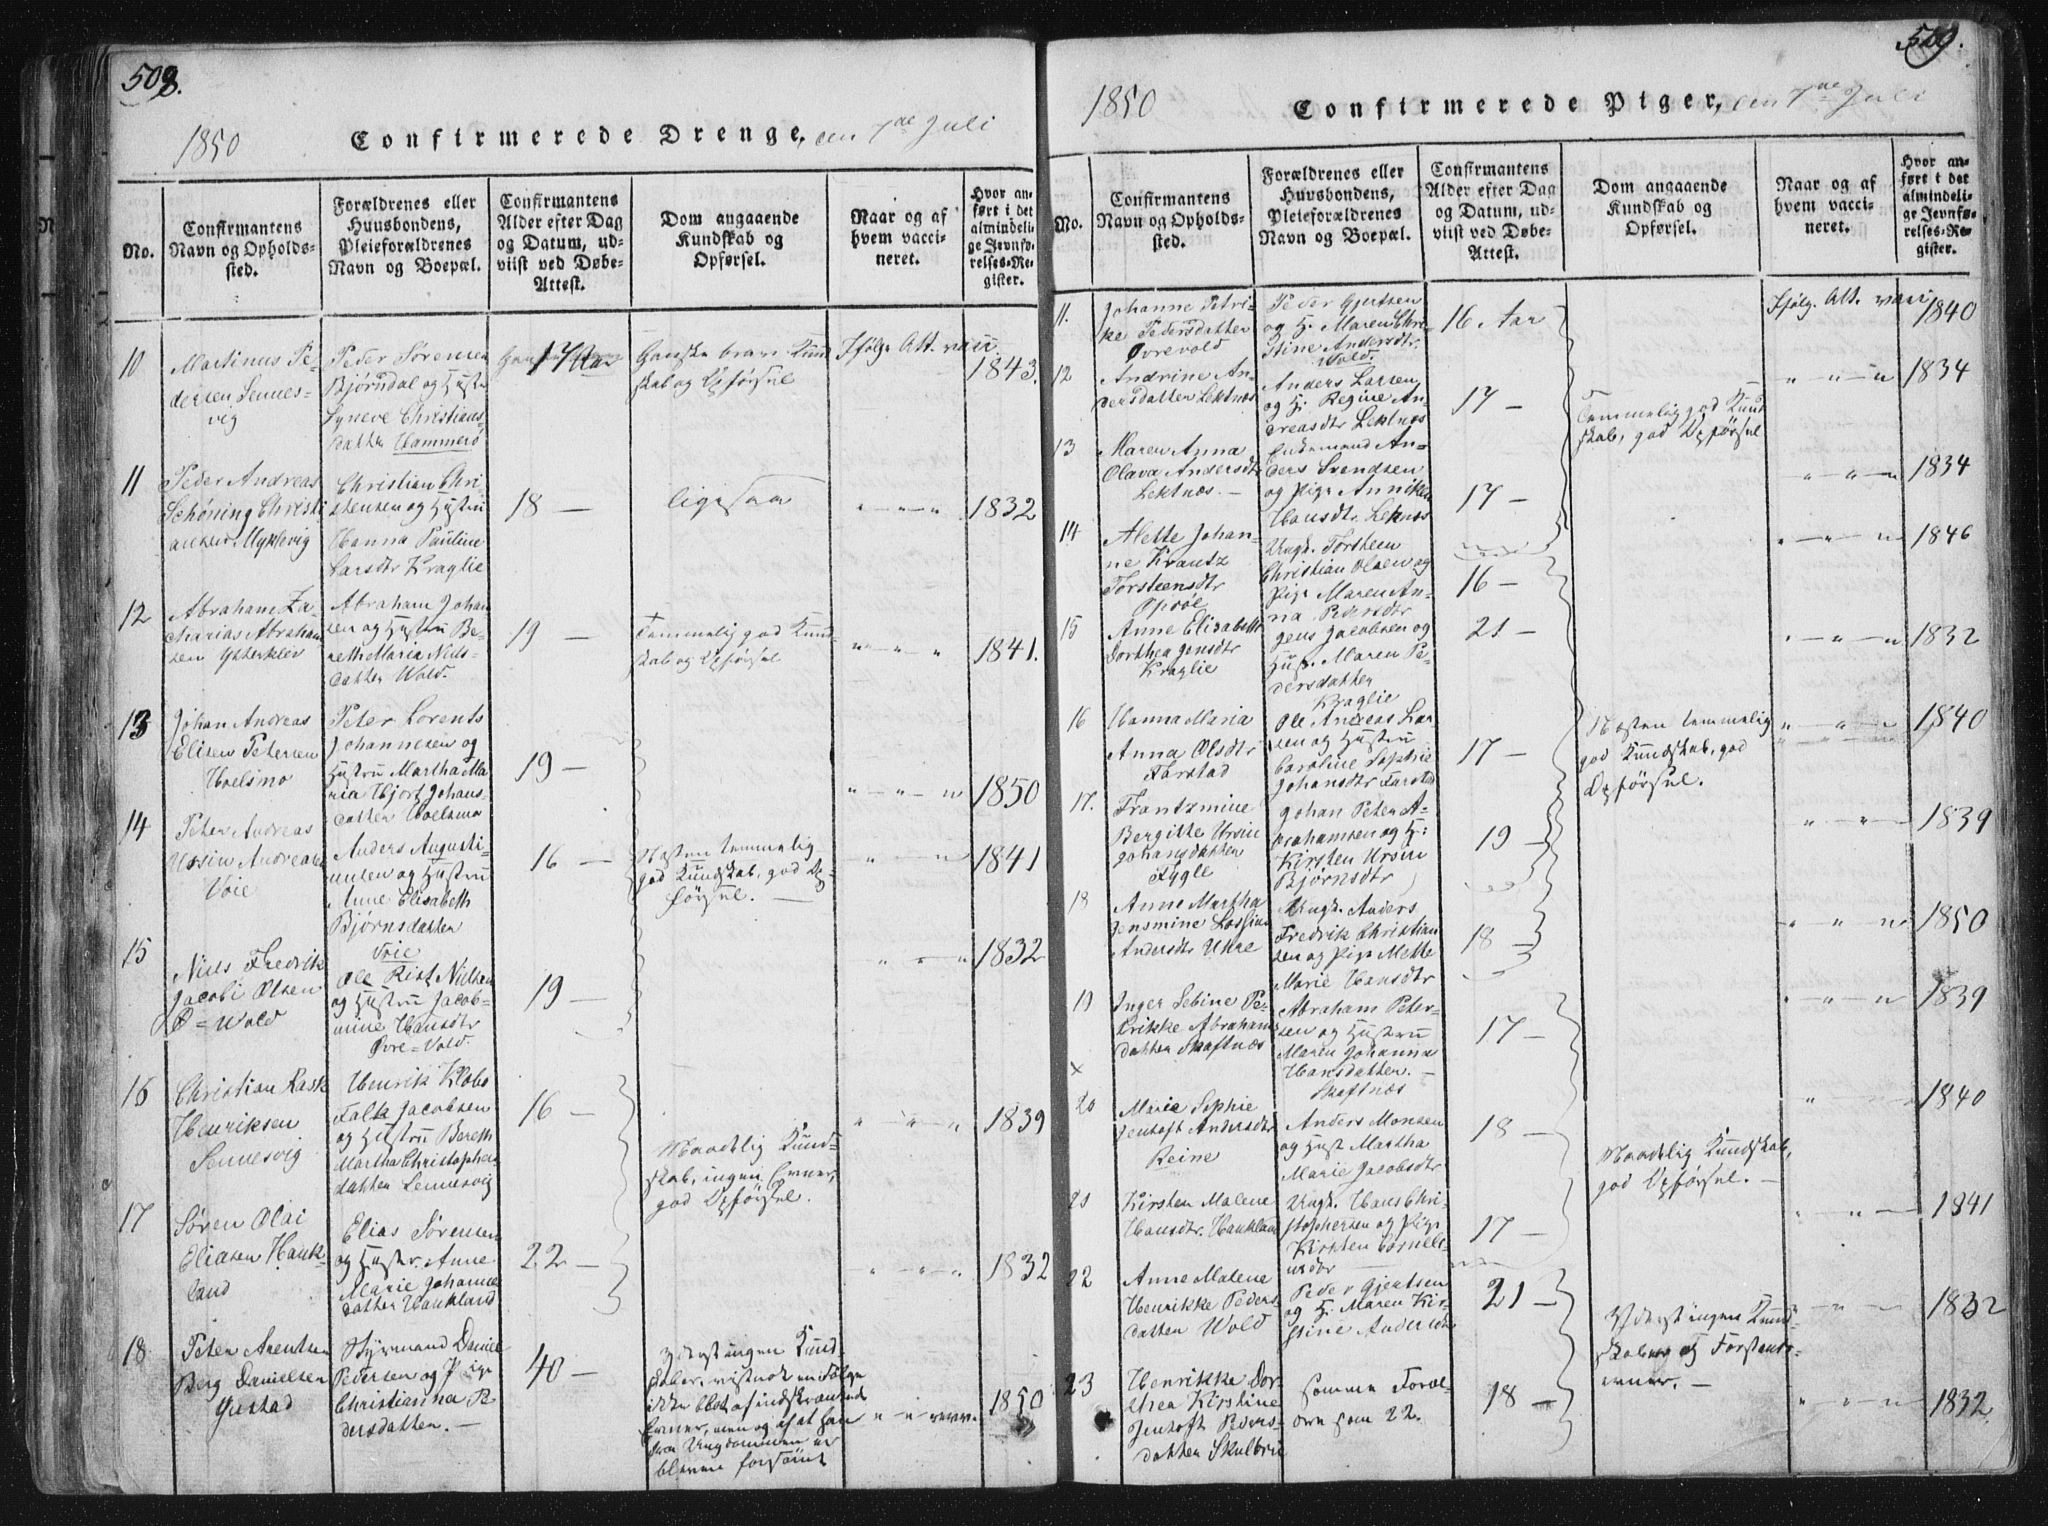 508.
1850 Confirmerede Drenge, den 7de Juli
No.
Confirmantens
Navn og Opholds-
sted.
Forældrenes eller
Huusbondens,
Pleieforældrenes
Navn og Boepæl.
Confirmantens
Alder efter Dag
og Datum, ud-
viist ved Døbe-
Attest.
Dom angaaende
Kundskab og
Opførsel.
Naar og af
hvem vacci-
neret.
Hvor an-
ført i det
almindeli-
ge Jevnfø-
relses-Re-
gister.
10
Martinus Pe-
dersen Sennes-
vig
Peder Sørensen
Bjørndal og Hustru
Syneve Christians-
datter Hammerø
17 Aar
Ganske brav Kund
skab og Opførsel
Ifølge Att. vacc
1843.
11
Peder Andreas
Schøning Christi
ansen Myklevig
Christian Chri-
stensen og Hustru
Hanna Pauline
Larsdtr Kraglie
18 —
ligesaa
" " "
1832
12
Abraham Za-
charias Abraham
sen Ytterklev
Abraham Johan
sen og Hustru Be-
reth Maria Niels-
datter Wold.
19 —
Temmelig god Kund-
skab og Opførsel
" " "
1841.
13
Johan Andreas
Elisen Petersen
Hoelsmo
Peter Lorents
Johannesen og
Hustru Martha Ma
ria Hjort Johans-
datter Hoelsmo
19 —
" " "
1850
14
Peter Andreas
Ursin Andreasen
Voie
Anders Augusti-
nusen og Hustru
Anne Elisabeth
Bjørnsdatter
Voie
16 —
Næsten temmelig
god Kundskab, god Op-
førsel. —
" " "
1841
15
Niels Fredrik
Jacobi Olsen
Ø=Wold
Ole Rist Nielsen
og Hustru Jacob-
mine Hansdtr
Øvre=Vold.
19 —
" " "
1832
16
Christian Rask
Henriksen
Sennesvig
Henrik Klobo
Falk Jacobsen
og Hustru Bereth
Martha Christopher
datter Sennesvig
16 —
Maadelig Kund-
skab, ingen Evner,
god Opførsel.
" " "
1839
17
Søren Olai
Eliasen Hauk-
land
Elias Sørensen
og Hustr. Anne
Marie Johanne
datter Haukland
22 —
" " "
1832
18
Peter Arentsen
Berg Danielsen
Ystad
Styrmand Daniel
Pedersen og Pige
Christianna Pe-
dersdatter. —
40 —
Yderst ingen Kund-
skaber, vistnok en Følge
ikke blot af indskrænkede
Evner, men og af at han
fra Ungdommen er
bleven forsømt
" " " revac.
1850
509.
1850 Confirmerede Piger, den 7de Juli
No.
Confirmantens
Navn og Opholds-
sted.
Forældrenes eller
Huusbondens,
Pleieforældrenes
Navn og Boepæl.
Confirmantens
Alder efter Dag
og Datum, ud-
viist ved Døbe-
Attest.
Dom angaaende
Kundskab og
Opførsel.
Naar og af
hvem vacci-
neret.
Hvor an-
ført i det
almindeli-
ge Jevnfø-
relses-Re-
gister.
11.
Johanne Petri-
ke Pedersdatter
Øvrevold
Peder Gjertsen
og H. Maren Chri-
stine Andersdtr.
Wold.
16 Aar
Ifølg. Att. vacc
1840
12
Andrine An-
dersdatter Lektnæs
Anders Larsen
og H. Regine An-
dreasdtr Lektnæs
17 —
Temmelig god Kund
skab, god Opførsel
" " "
1834
13
Maren Anna
Olava Andersdtr
Lektnæs. —
Enkemand An-
ders Svendsen
og Pige Anniken
Hansdtr. Leknes
17 —
" " "
1834
14
Alette Johan-
ne Krantz
Torsteensdtr
Opdøl
Ungk. Torsteen
Christian Olsen og
Pige Maren An-
na Pedersdtr
16 —
" " "
1846
15
Anne Elisabeth
Dorthea Jensdtr
Kraglie
Jens Jacobsen og
Hus. Maren Pe-
dersdatter
Kraglie
21 —
" " "
1832
16
Hanna Maria
Anna Olsdtr
Farstad
Ole Andreas Lar
sen og Hustru
Caroline Sophie
Johansdtr Farstad
17 —
Næsten temmelig
god Kundskab, god
Opførsel.
" " "
" " "
1840
17.
Frantzmine
Bergitte Ursin
Johansdatter
Fygle
Johan Peter A-
brahamsen og H:
Kirsten Ursin
Bjørnsdtr
19 —
" " "
1839
18
Anne Martha
Jensmine Lossius
Andersdtr Uhre
Ungk. Anders
Fredrik Christian
sen og Pige Mette
Marie Hansdtr
18 —
" " "
1850
19
Inger Sebine Pe-
trikke Abraham
datter Skaftnæs
x
Abraham Peter-
sen og Hustru
Maren Johanna
Hansdatter. —
Skaftnæs
17 —
" " "
1839
20
Marie Sophie
Jentoft Andersdtr
Reine
Anders Monsen
og Hust Martha
Marie Jacobsdtr
18 —
Maadelig Kundskab,
god Opførsel. —
" "
1840
21
Kirsten Malene
Hansdtr. Haukland
Ungk. Hans Chri-
stophersen og Pige
Kirsten Cornels-
17 —
" " "
1841
22
Anne Malene
Henrikke Peders-
datter Wold
Peder Gjertsen
og H. Maren Kir-
stine Andersdtr
21 —
Yderst ingen Kund-
skaber og Forstands-
evner. —
" " "
1832
23
Henrikke Dor-
thea Kirstine
Jentoft Peders-
datter Skulbrie
samme Foræl-
dre som 22.
18 —
" " "
1832.